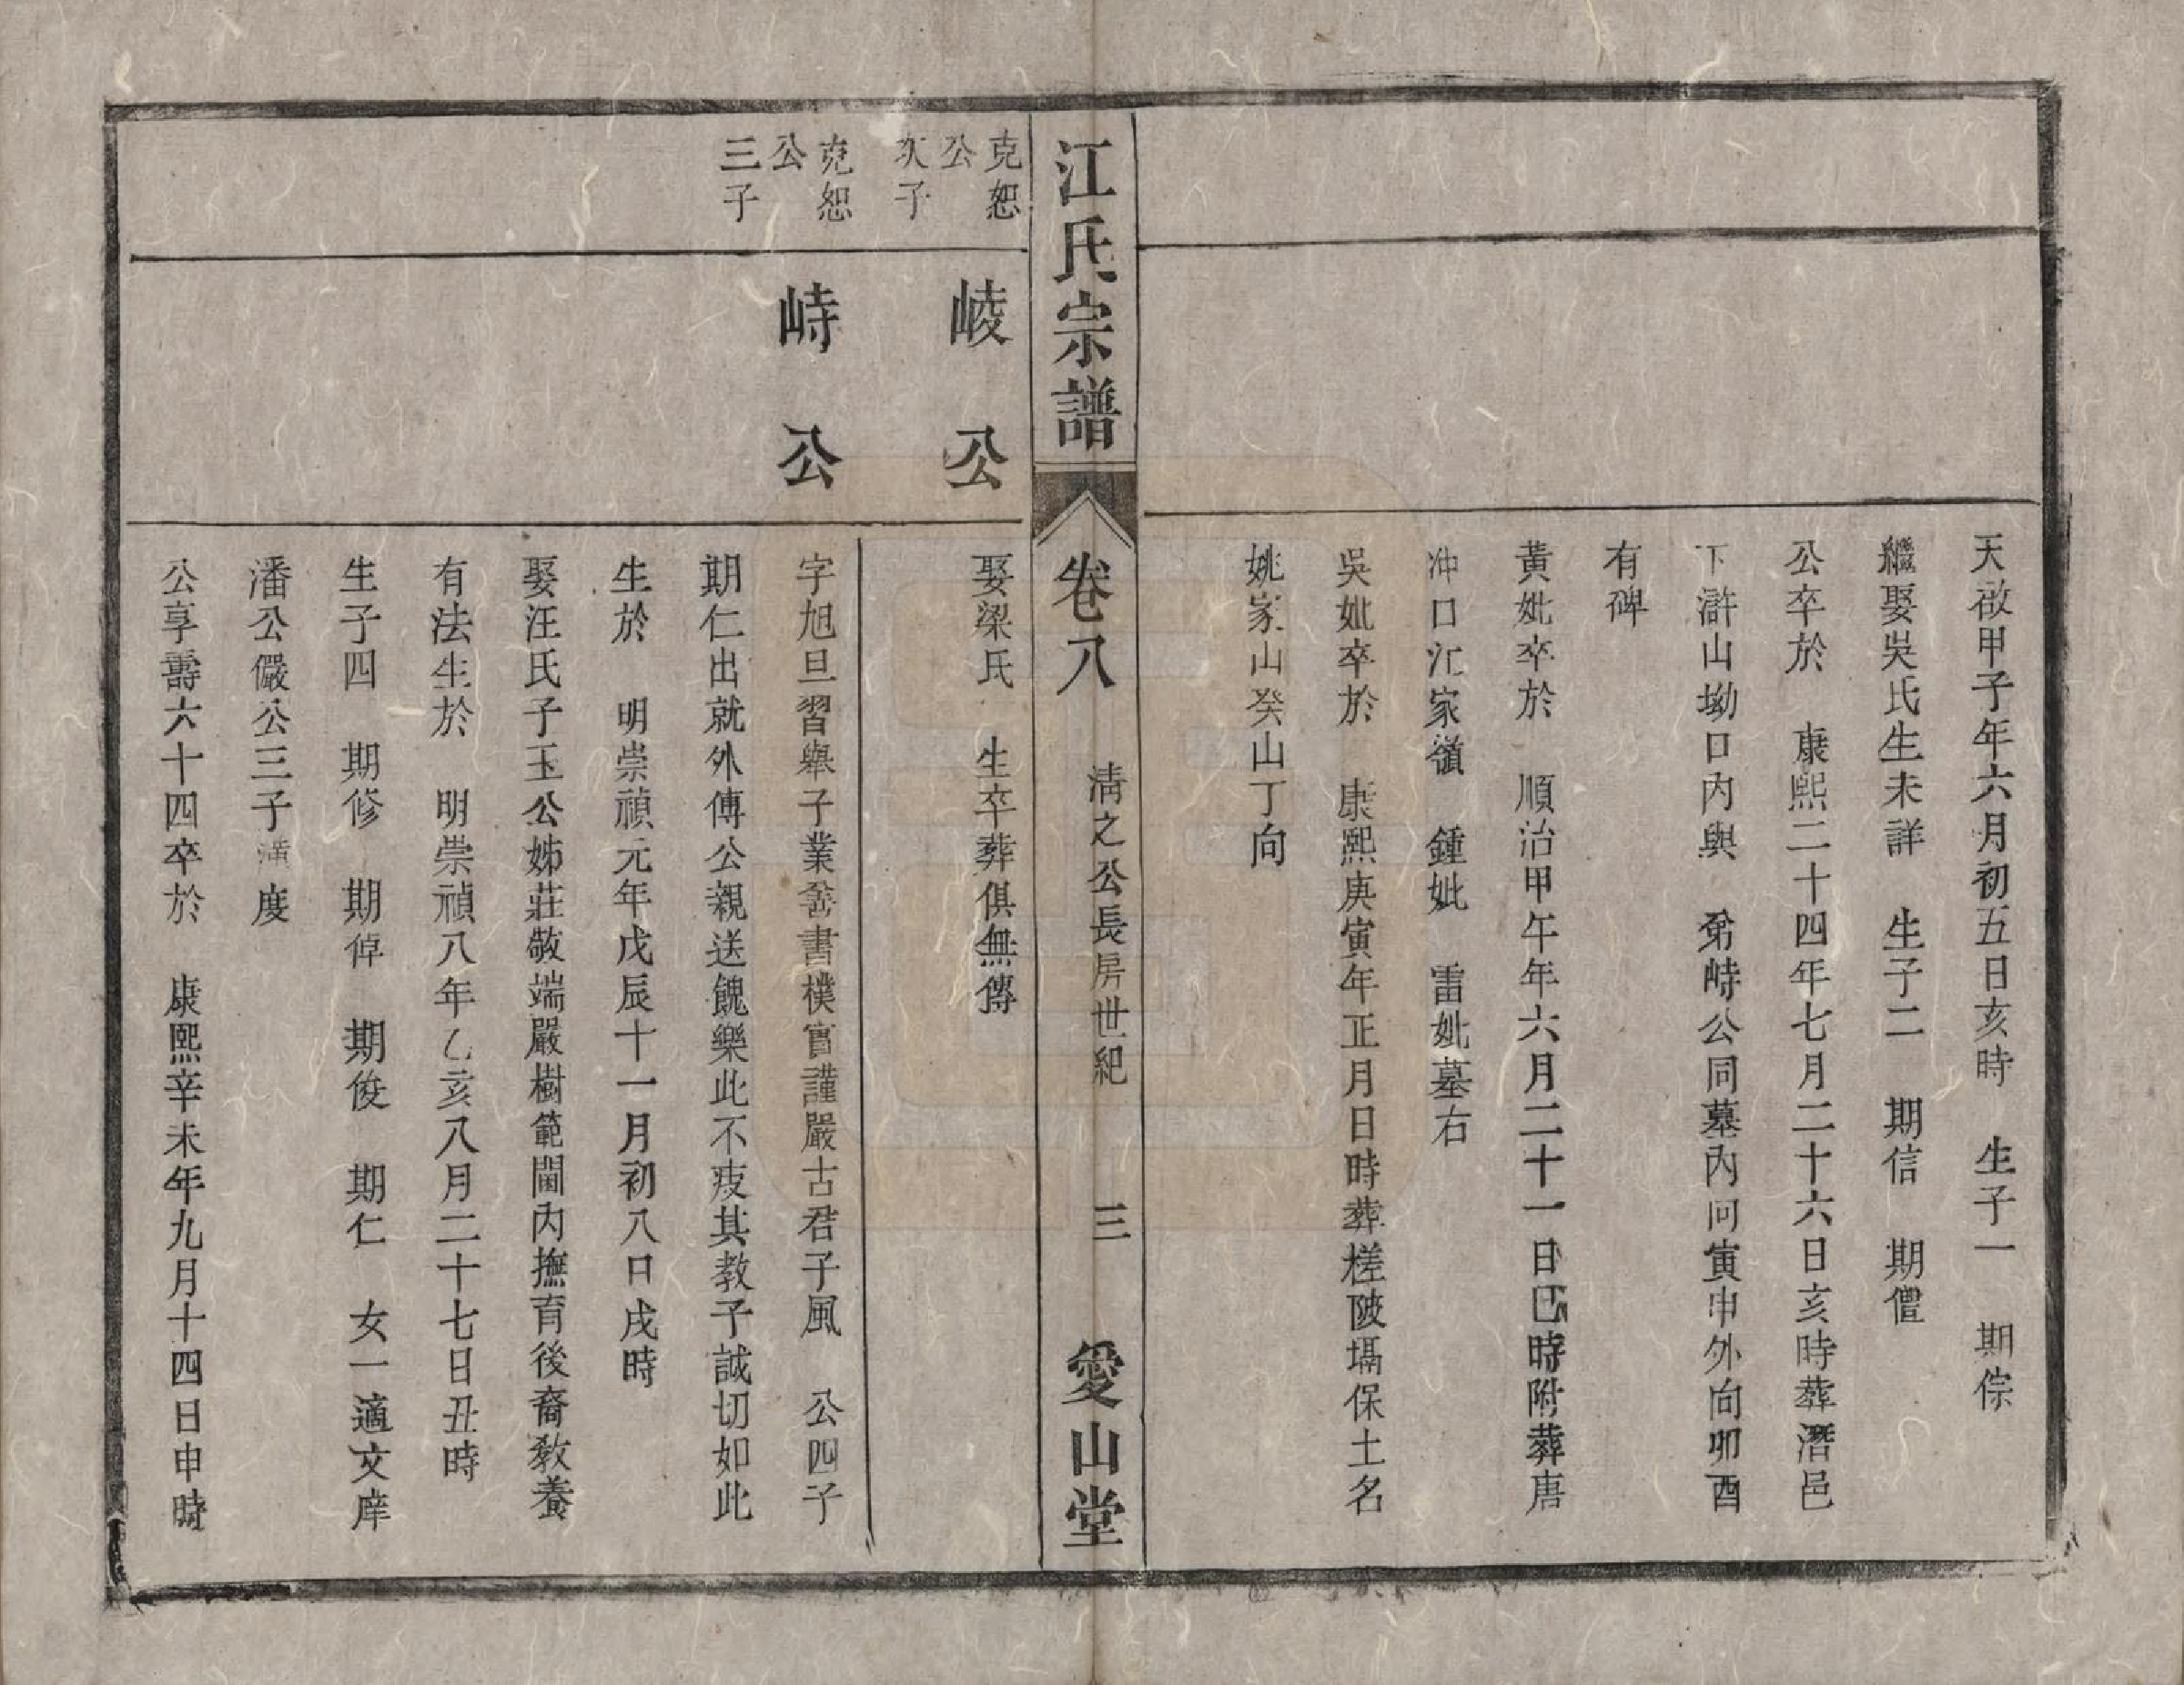 天啟甲子年六月初五日亥時　生子一　期倧
繼娶吳氏生未詳　生子二　期信　期儃
公卒於　康熙二十四年七月二十六日亥時葬潛邑
下滸山坳口內與　弟峙公同墓內向寅申外向卯酉
有碑
黃妣卒於　順治甲午年六月二十一日巳時附葬唐
冲口江家嶺　鍾妣　雷妣墓右
吳妣卒於　康熙庚寅年正月日時葬槎陂塥保土名
姚家山癸山丁向
江氏宗譜　卷八　清之公長房世紀　三　愛山堂
克恕公次子
崚公
娶梁氏　生卒葬俱無傳
克恕公三子
峙公
字旭旦習舉子業善書樸實謹嚴古君子風　公四子
期仁出就外傅公親送餽樂此不疲其教子誠切如此
生於　明崇禎元年戊辰十一月初八日戌時
娶汪氏子玉公姊莊敬端嚴樹範閫內撫育後裔教養
有法生於　明崇禎八年乙亥八月二十七日丑時
生子四　期修　期倬　期俊　期仁　女一適文庠
潘公儼公三子潢度
公享壽六十四卒於　康熙辛未年九月十四日申時